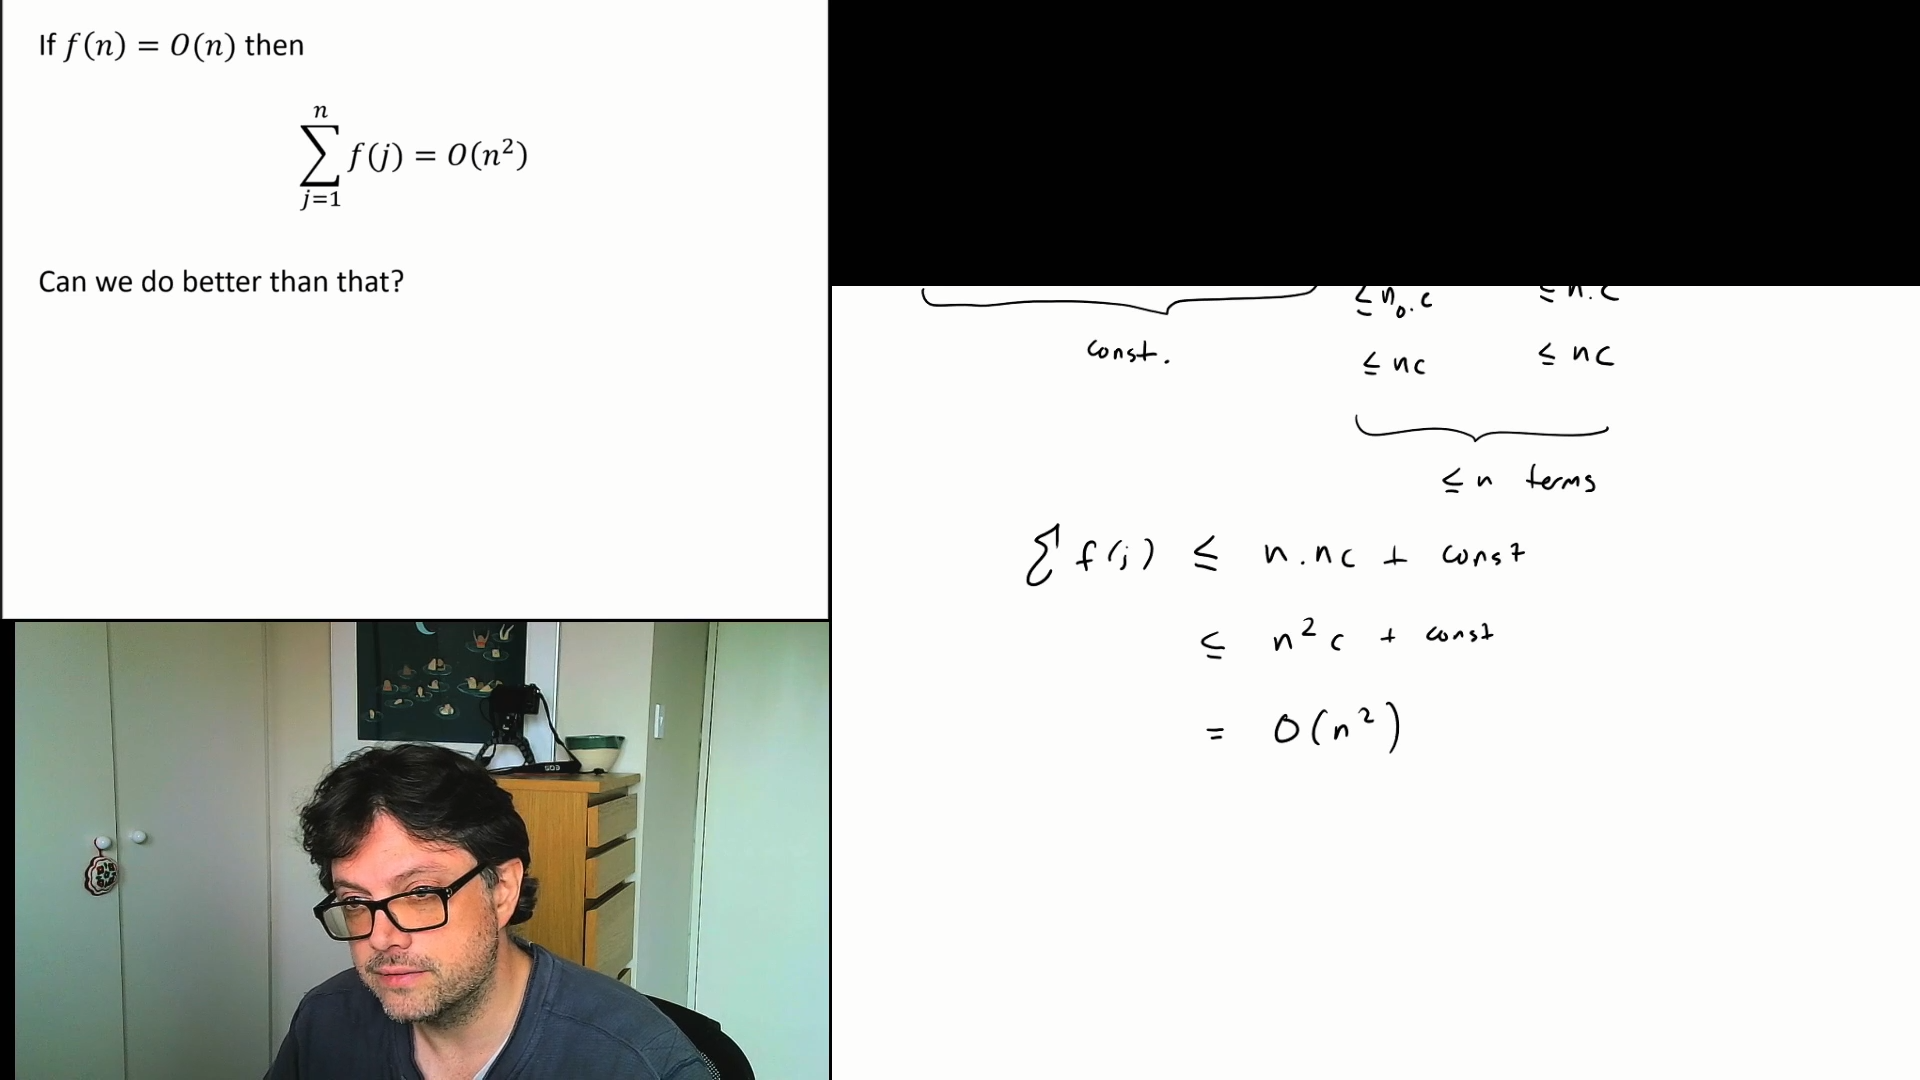 If f(n) = O(n) then
n
∑ f(j) = O(n²)
j=1
Can we do better than that?
≤ n₀.c ≤ n.c
const. ≤ nc ≤ nc
≤ n terms
∑ f(j) ≤ n.nc + const
≤ n²c + const
= O(n²)
EOS